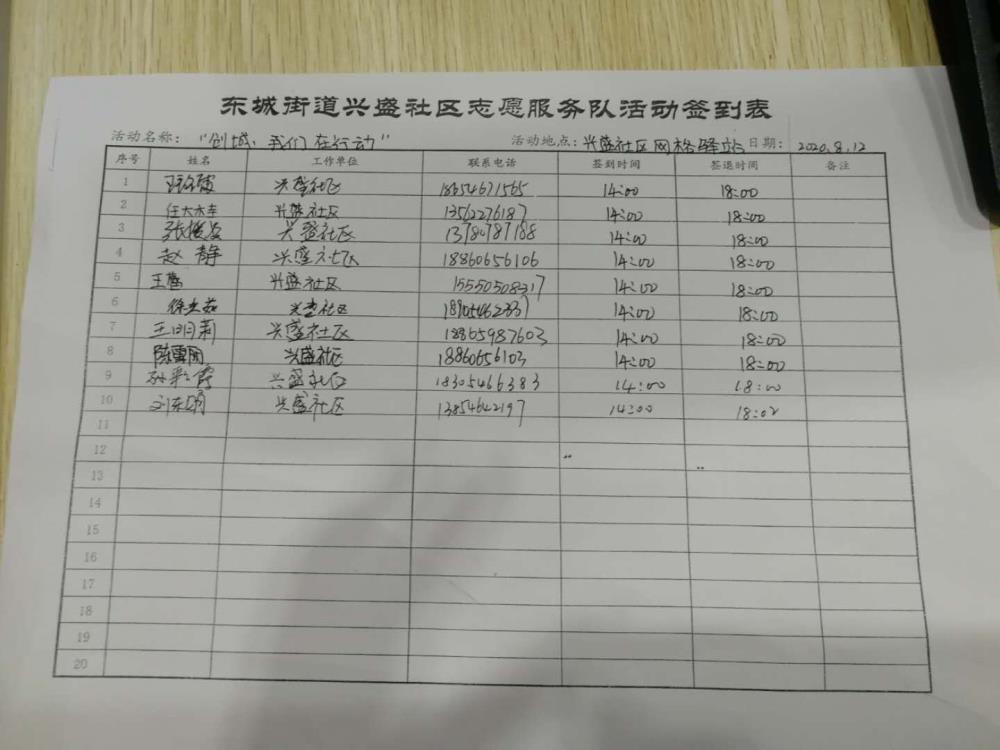 东城街道兴盛社区志愿服务队活动签到表
活动名称：“创城，我们在行动” 活动地点：兴盛社区网格驿站 日期：2020.8.12
序号 姓名 工作单位 联系电话 签到时间 签退时间 备注
1 兴盛社区 18654671565 14:00 18:00
2 任大水 兴盛社区 13562276187 14:00 18:00
3 张俊 兴盛社区 13780787188 14:00 18:00
4 赵静 兴盛社区 18860656106 14:00 18:00
5 王 兴盛社区 15550508317 14:00 18:00
6 徐 兴盛社区 14:00 18:00
7 王明莉 兴盛社区 13865987603 14:00 18:00
8 陈雪 兴盛社区 18860656103 14:00 18:00
9 孙彩霞 兴盛社区 18305466383 14:00 18:00
10 刘东 兴盛社区 13854642197 14:00 18:02
11
12
13
14
15
16
17
18
19
20